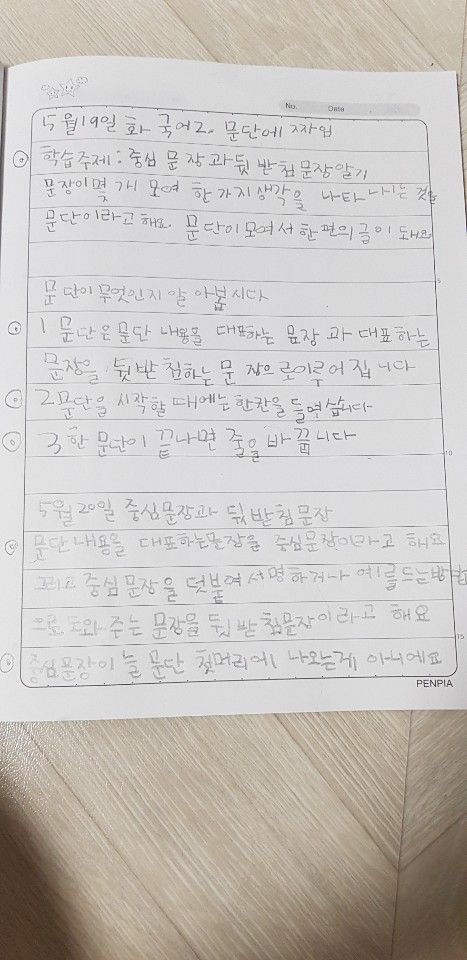 No. Date
5월19일 화 국어2. 문단에 짜임
학습주제: 중심 문장과 뒷받침문장알기
문장이몇 개 모여 한가지생각을 나타 나내는 것을
문단이라고 해요. 문단이모여서한편의글이 돼요
문단이무엇인지알 아봅시다
1 문단은문단 내용을 대표하는 문장 과 대표하는
문장을 뒷받 침하는 문 장으로이루어집 니다
2문단을 시작할 때에는한칸을 들여씁니다
3 한 문단이 끝나면 줄을 바 꿉니다
5월20일 중심문장과 뒷받침문장
문단내용을 대표하는문장을 중심문장이라고 해요
그리고 중심문장을 덧붙여서명하거나 예를드는방법
으로 도와 주는 문장을 뒷받 침문장이라고 해요
중심문장이 늘 문단 첫머리에 나오는게 아니에요
5
10
15
PENPIA